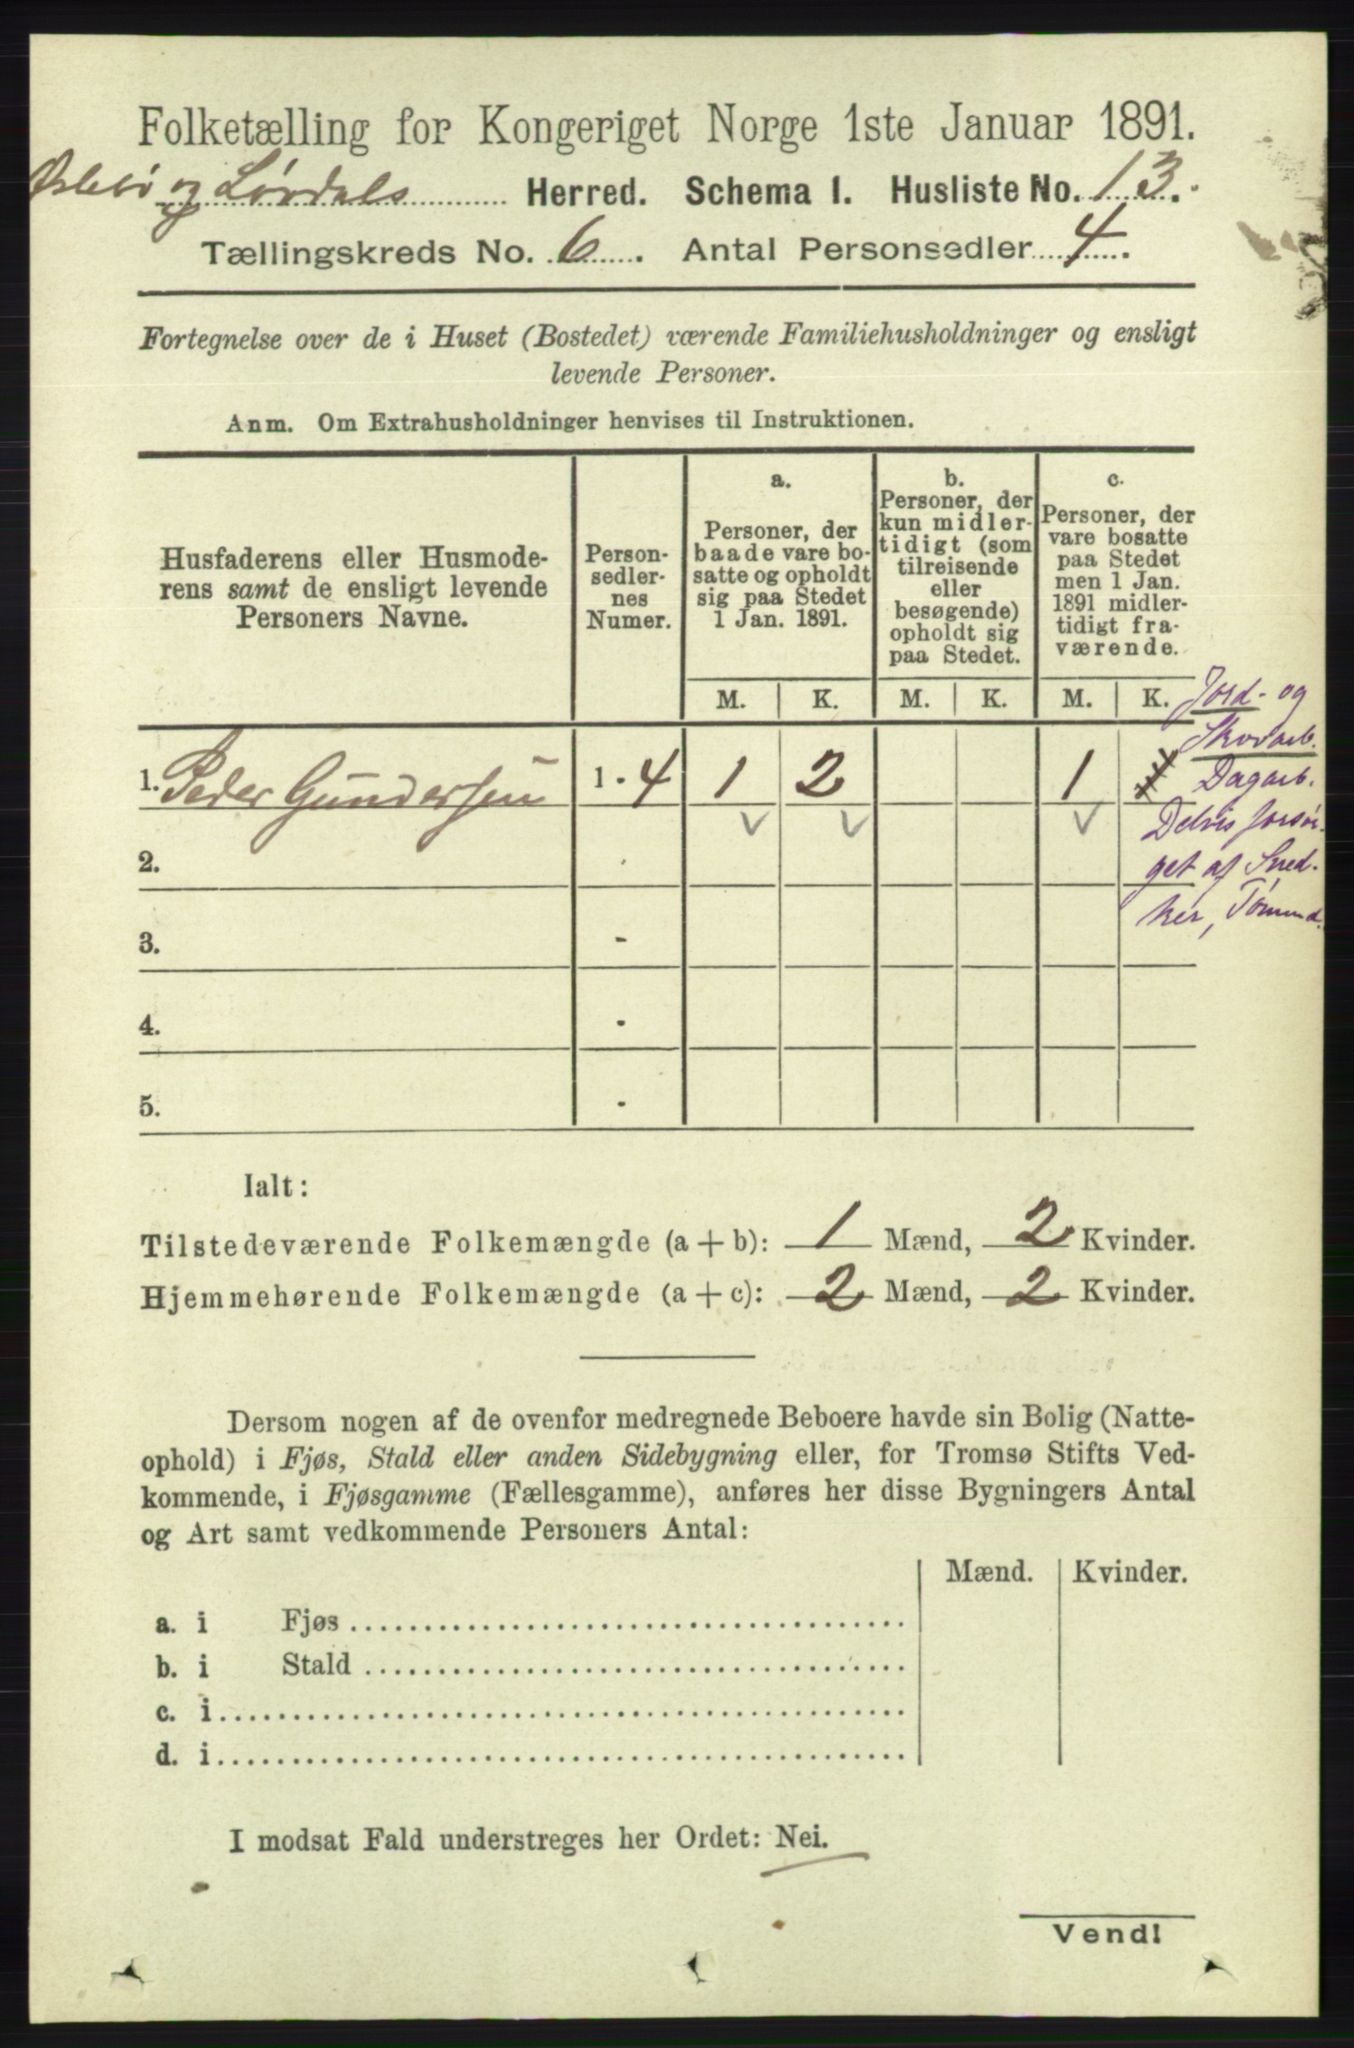 Folketælling for Kongeriget Norge 1ste Januar 1891.
Øslebø og Løvdals Herred. Schema 1. Husliste No. 13.
Tællingskreds No. 6. Antal Personsedler 4.
Fortegnelse over de i Huset (Bostedet) værende Familiehusholdninger og ensligt
levende Personer.
Anm. Om Extrahusholdninger henvises til Instruktionen.
Husfaderens eller Husmode-
rens samt de ensligt levende
Personers Navne.
Person-
sedler-
nes
Numer.
a.
Personer, der
baade vare bo-
satte og opholdt
sig paa Stedet
1 Jan. 1891.
b.
Personer, der
kun midler-
tidigt (som
tilreisende
eller
besøgende)
opholdt sig
paa Stedet.
c.
Personer, der
vare bosatte
paa Stedet
men 1 Jan.
1891 midler-
tidigt fra-
værende.
M. K. M. K. M. K.
Jord- og
Skovarb.
Dagarb.
Delvis forsør-
get af Sned-
ker, Tømmd.
1. Peder Gundersen 1 - 4 1 2 1
2.
3. -
4. -
5. -
Ialt:
Tilstedeværende Folkemængde (a + b): 1 Mænd, 2 Kvinder.
Hjemmehørende Folkemængde (a + c): 2 Mænd, 2 Kvinder.
Dersom nogen af de ovenfor medregnede Beboere havde sin Bolig (Natte-
ophold) i Fjøs, Stald eller anden Sidebygning eller, for Tromsø Stifts Ved-
kommende, i Fjøsgamme (Fællesgamme), anføres her disse Bygningers Antal
og Art samt vedkommende Personers Antal:
Mænd. Kvinder.
a. i Fjøs
b. i Stald
c. i
d. i
I modsat Fald understreges her Ordet: Nei.
Vend!